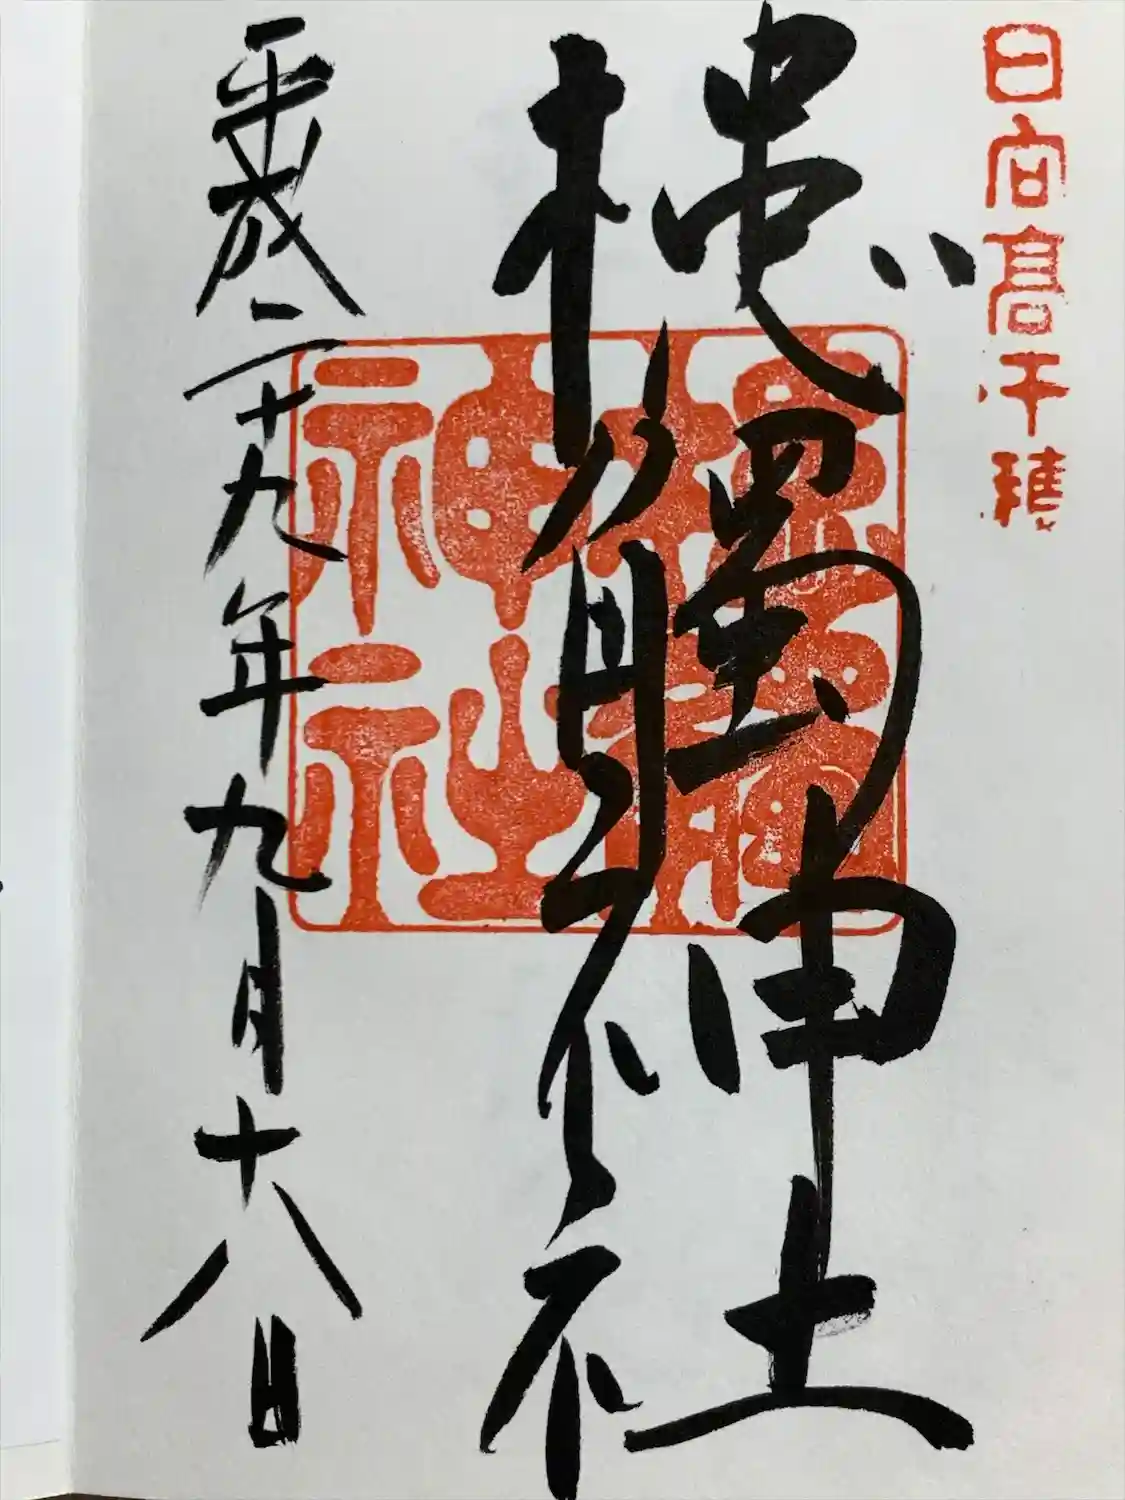 日向高千穂
槵觸神社
槵觸神社
平成二十九年九月十八日